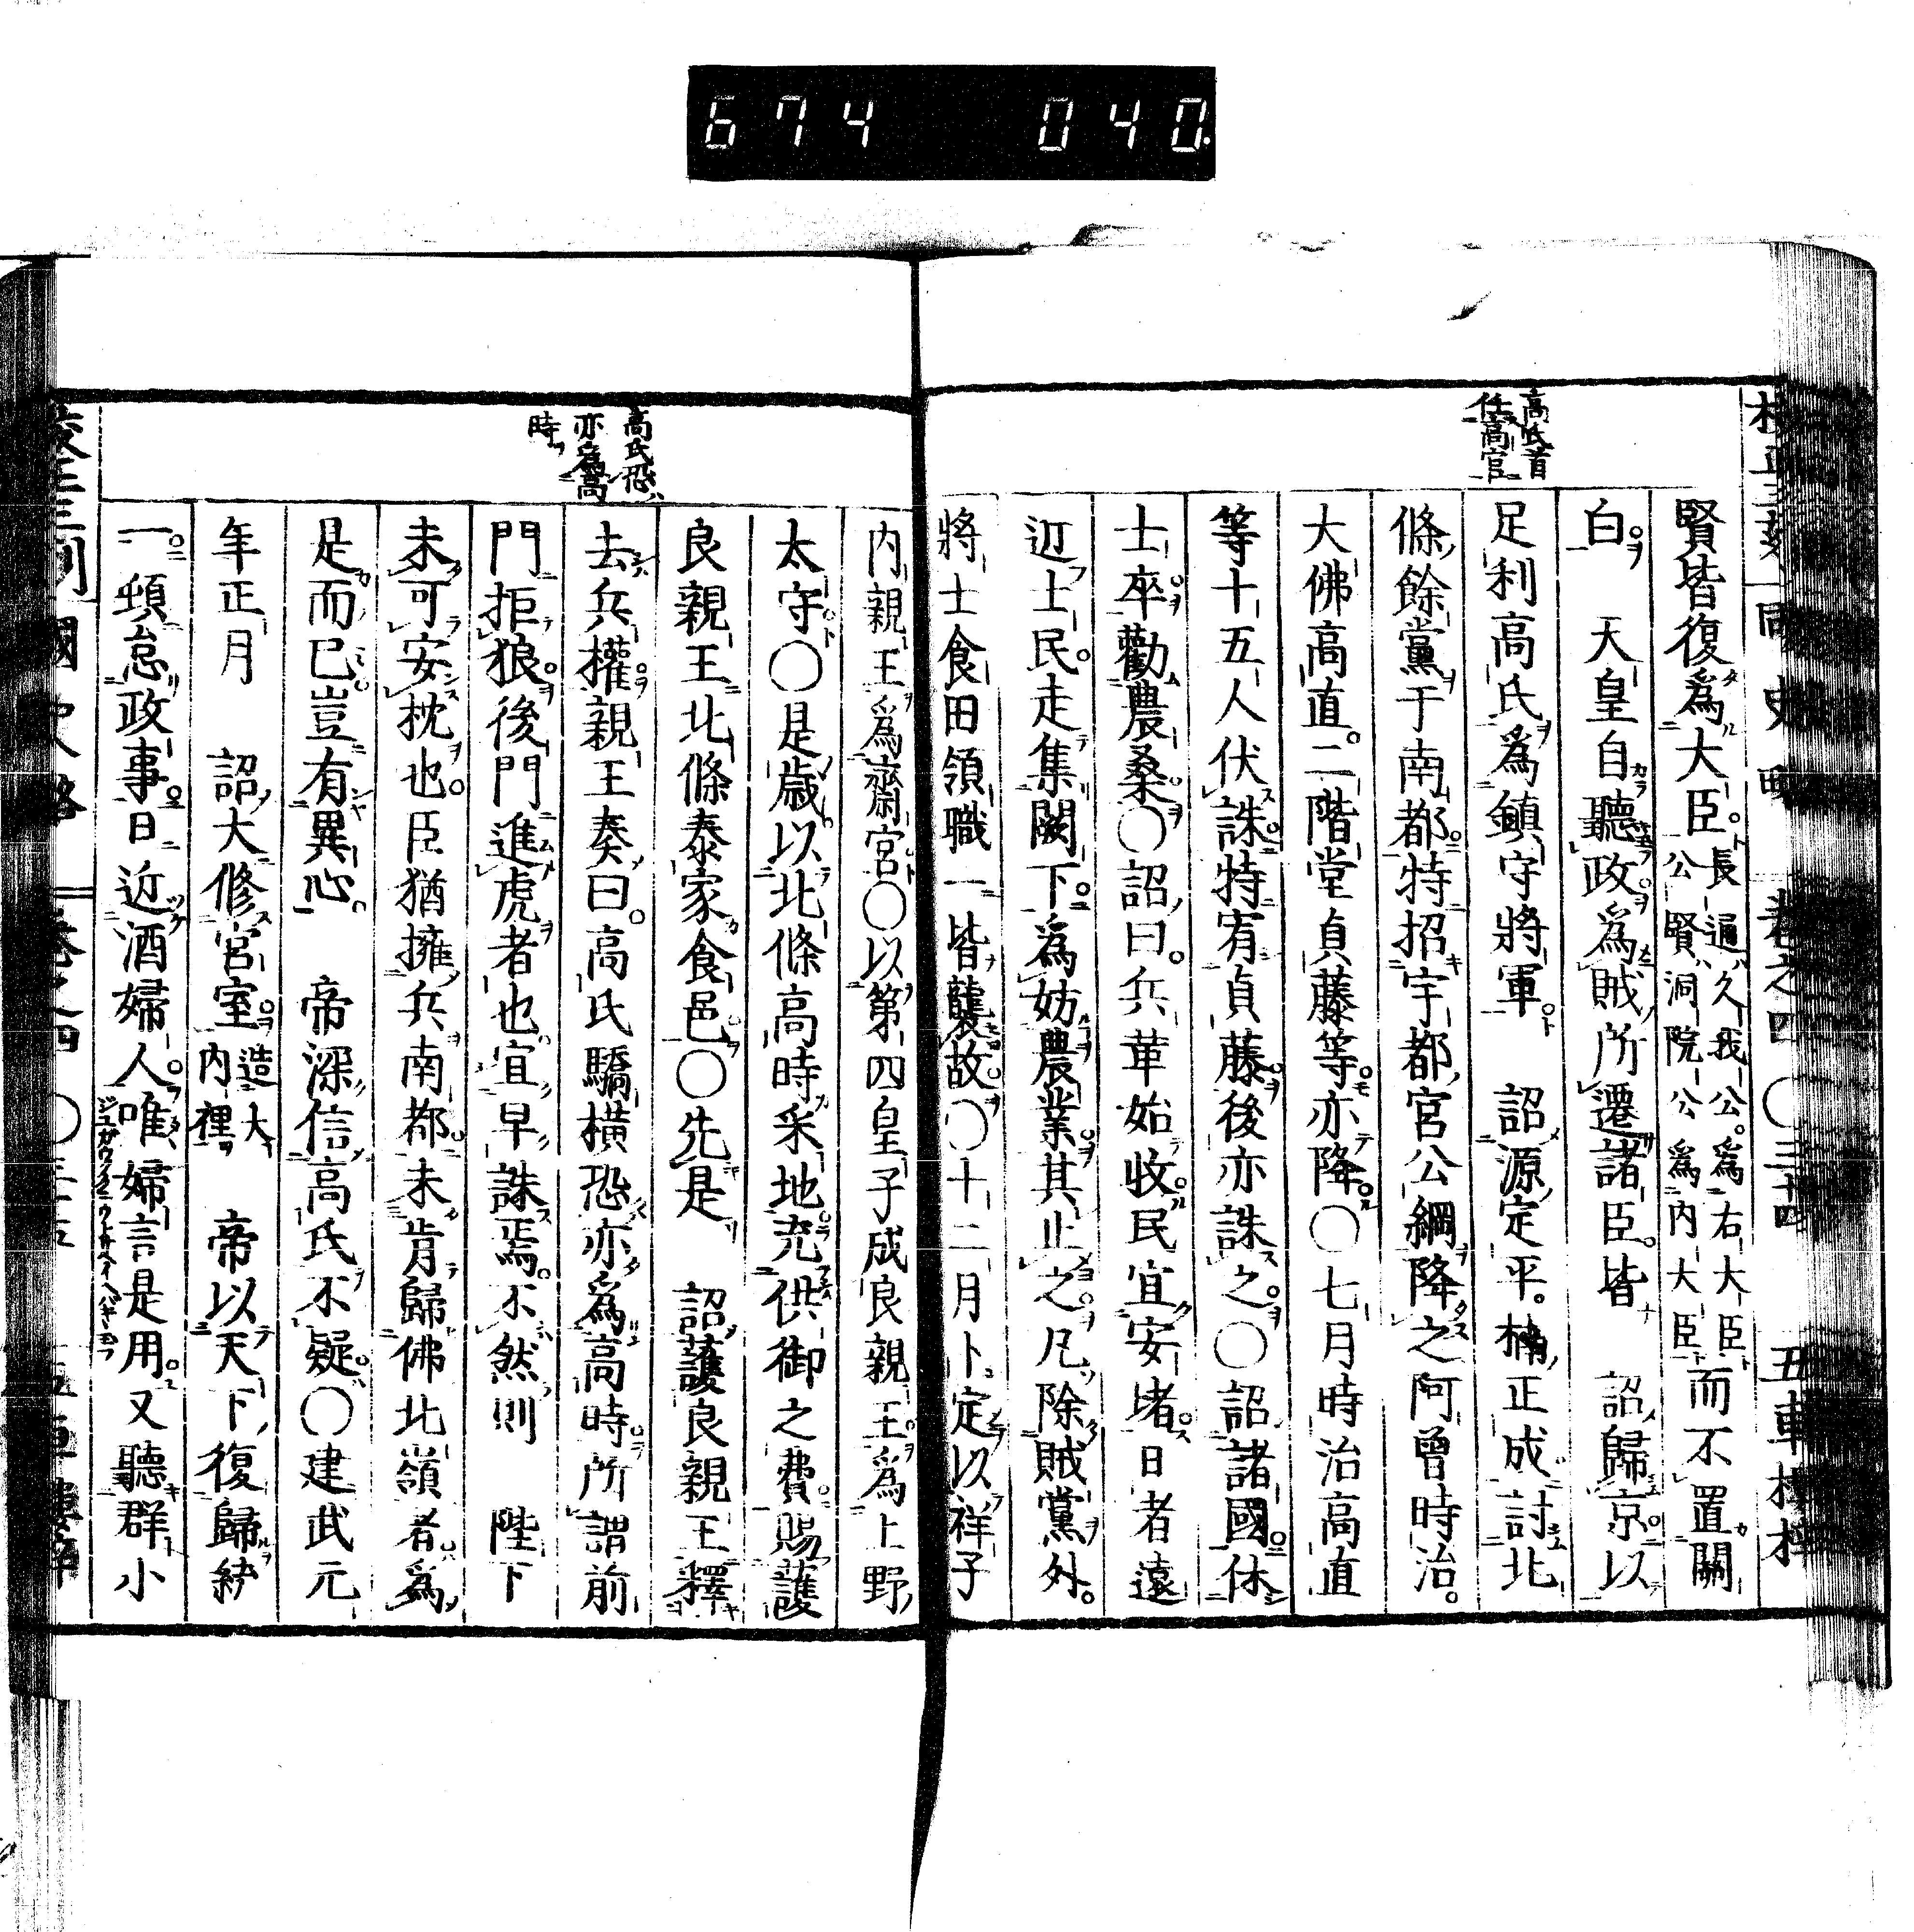 674 040
高氏首
任高官
賢皆復爲大臣長通久我公爲右大臣而不置關
公賢洞院公爲内大臣
白 天皇自聽政爲賊所遷諸臣皆 詔歸京以
足利高氏爲鎮守將軍 詔源定平楠正成討北
條餘黨于南都特招宇都宮公綱降之阿曾時治
大佛高直二階堂貞藤等亦降〇七月時治高直
等十五人伏誅特宥貞藤後亦誅之〇詔諸國休
士卒勸農桑〇詔曰兵革始收民宜安堵日者遠
辺士民走集闕下爲妨農業其止之凡除賊黨外
將士食田領職一皆襲故〇十二月卜定以祥子
高氏恐
亦爲高
時
内親王爲齋宮〇以第四皇子成良親王爲上野
太守〇是歳以北條高時采地充供御之費賜護
良親王北條泰家食邑〇先是 詔護良親王釋
去兵權親王奏曰高氏驕橫恐亦爲高時所謂前
門拒狼後門進虎者也宜早誅焉不然則 陛下
未可安枕也臣猶擁兵南都未肯歸佛北嶺者爲
是而已豈有異心 帝深信高氏不疑〇建武元
年正月 詔大修宮室造大内裡 帝以天下復歸統
一頗怠政事日近酒婦人唯婦言是用又聽群小